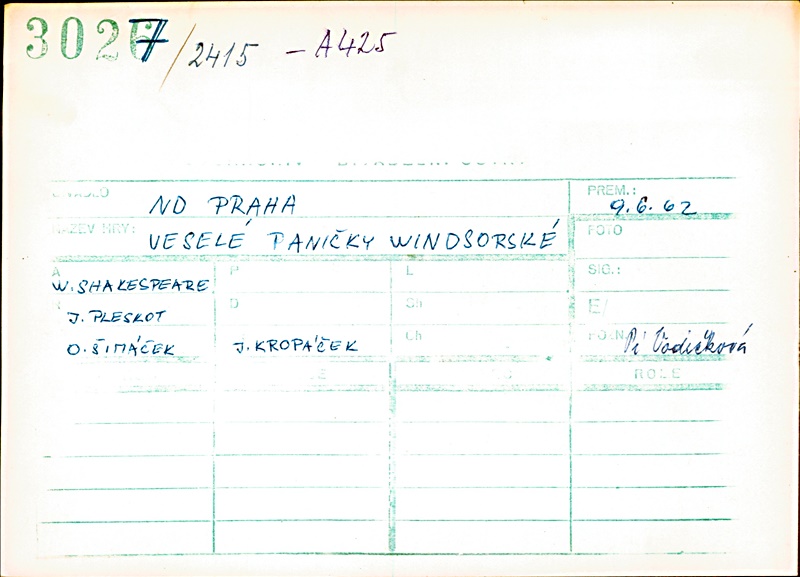 30267/2415 – A425
DIVADLO ND PRAHA PREM.: 9.6.62
NÁZEV HRY: VESELÉ PANIČKY WINDSORSKÉ FOTO
A W. SHAKESPEARE P L SIG.:
J. PLESKOT D Sh E/
O. ŠIMÁČEK J. KROPÁČEK Ch POZN. Pí Vodičková
ROLE